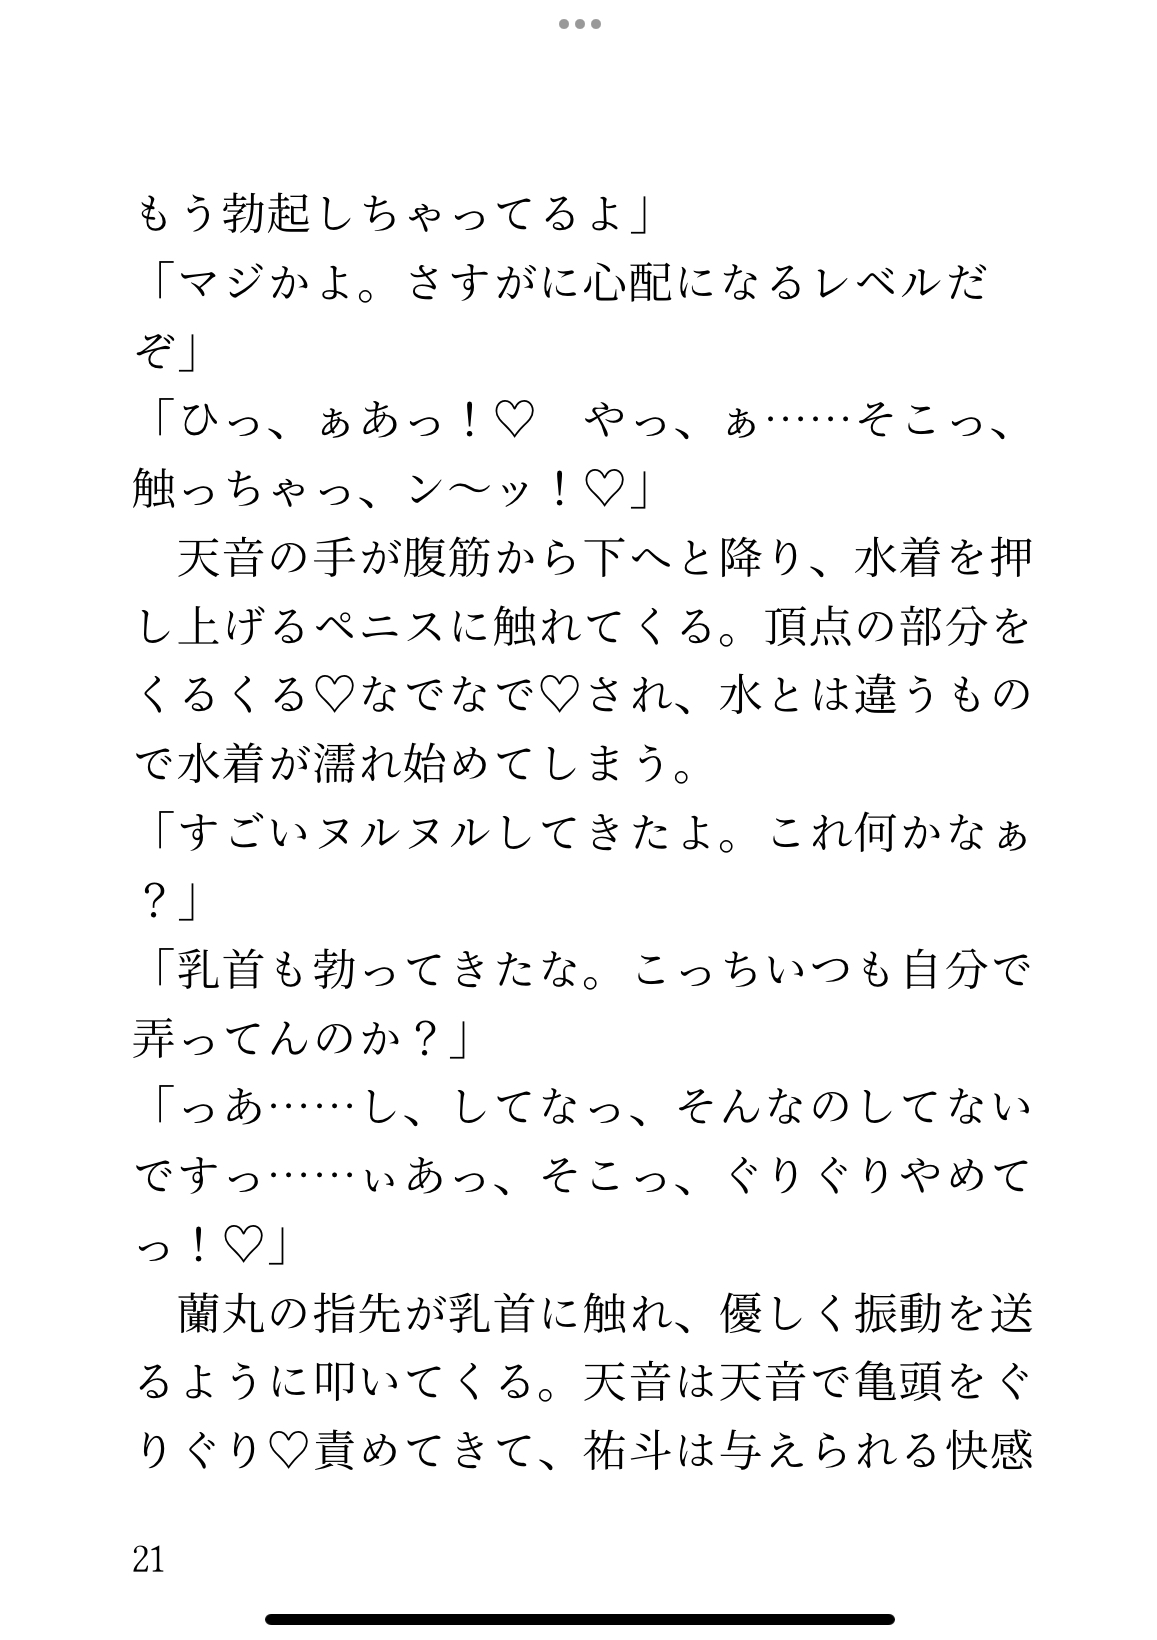 もう勃起しちゃってるよ」
「マジかよ。さすがに心配になるレベルだ
ぞ」
「ひっ、ぁあっ！♡　やっ、ぁ……そこっ、
触っちゃっ、ン〜ッ！♡」
　天音の手が腹筋から下へと降り、水着を押
し上げるペニスに触れてくる。頂点の部分を
くるくる♡なでなで♡され、水とは違うもの
で水着が濡れ始めてしまう。
「すごいヌルヌルしてきたよ。これ何かなぁ
？」
「乳首も勃ってきたな。こっちいつも自分で
弄ってんのか？」
「っあ……し、してなっ、そんなのしてない
ですっ……ぃあっ、そこっ、ぐりぐりやめて
っ！♡」
　蘭丸の指先が乳首に触れ、優しく振動を送
るように叩いてくる。天音は天音で亀頭をぐ
りぐり♡責めてきて、祐斗は与えられる快感
21